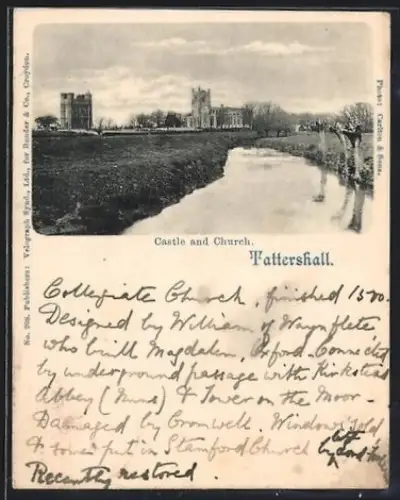 No. 206. Publishers: Velograph Synd., Ltd., for Bender & Co., Croydon.
Photo: Carlton & Sons.
Castle and Church.
Tattershall.
Collegiate Church, finished 1500.
Designed by William of Waynflete
who built Magdalen, Oxford. Connected
by underground passage with Kirkstead
Abbey (Nuns) & Tower on the Moor.
Damaged by Cromwell. Windows sold
& some put in Stamford Church by Lord
Recently restored.